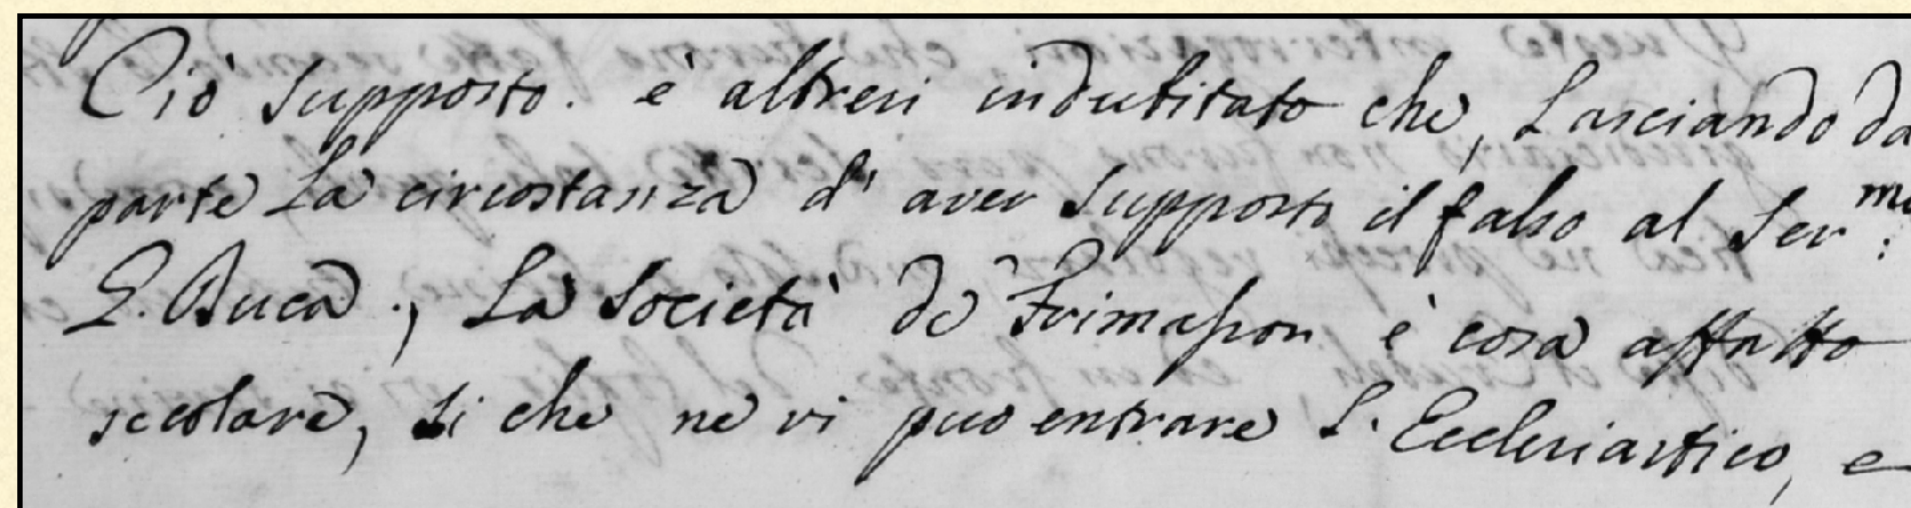 Ciò supposto. è altresi indubitato che, Lasciando da
parte La circostanza d' aver supposto il falso al Ser:mo
G. Duca., La Società de Frimasson è cosa affatto
secolare, si che ne vi può entrare L'Ecclesiastico, e